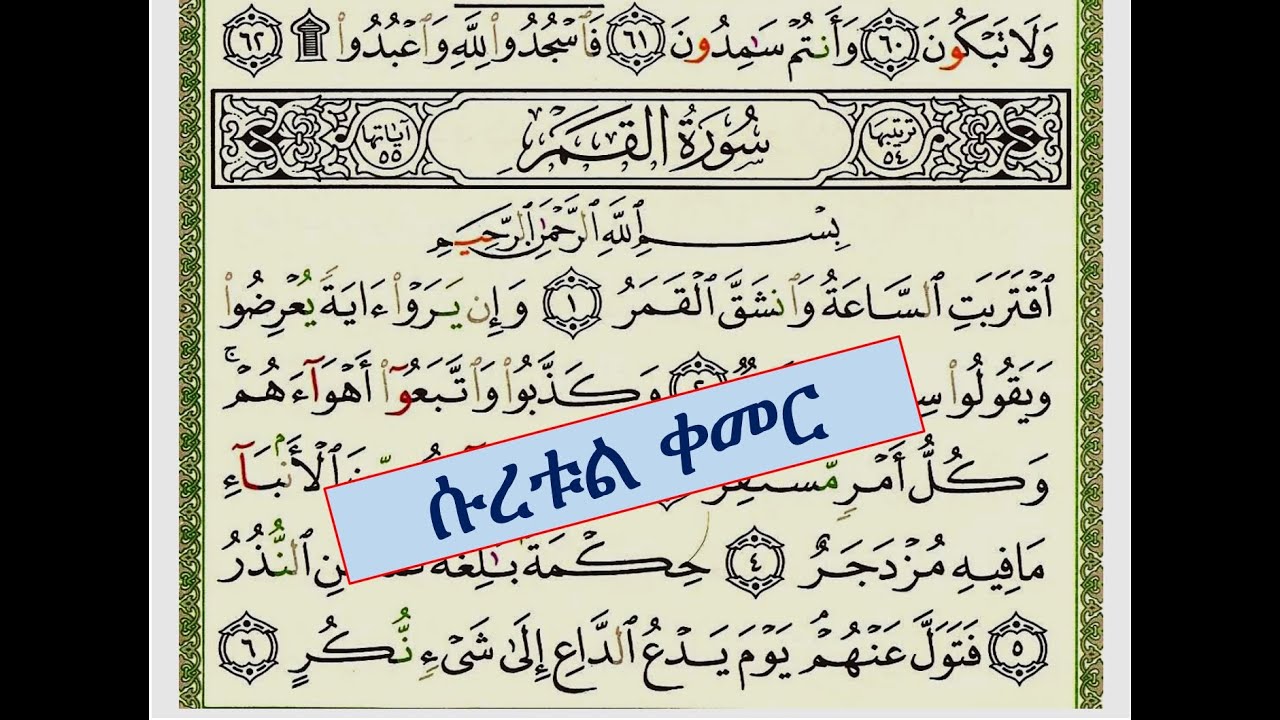 وَلَا تَبْكُونَ ٦٠ وَأَنتُمْ سَـٰمِدُونَ ٦١ فَٱسْجُدُوا۟ لِلَّهِ وَٱعْبُدُوا۟ ۩ ٦٢
ترتيبها ٥٤ سُورَةُ القَمَرِ آياتها ٥٥
بِسْمِ ٱللَّهِ ٱلرَّحْمَـٰنِ ٱلرَّحِيمِ
ٱقْتَرَبَتِ ٱلسَّاعَةُ وَٱنشَقَّ ٱلْقَمَرُ ١ وَإِن يَرَوْا۟ ءَايَةً يُعْرِضُوا۟
وَيَقُولُوا۟ ٢ وَكَذَّبُوا۟ وَٱتَّبَعُوٓا۟ أَهْوَآءَهُمْ ۚ
وَكُلُّ أَمْرٍ مُّسْتَقِرٌّ ٱلْأَنۢبَآءِ
مَا فِيهِ مُزْدَجَرٌ ٤ حِكْمَةٌۢ بَـٰلِغَةٌ ٱلنُّذُرُ
٥ فَتَوَلَّ عَنْهُمْ ۘ يَوْمَ يَدْعُ ٱلدَّاعِ إِلَىٰ شَىْءٍ نُّكُرٍ ٦
ሱረቱል ቀመር